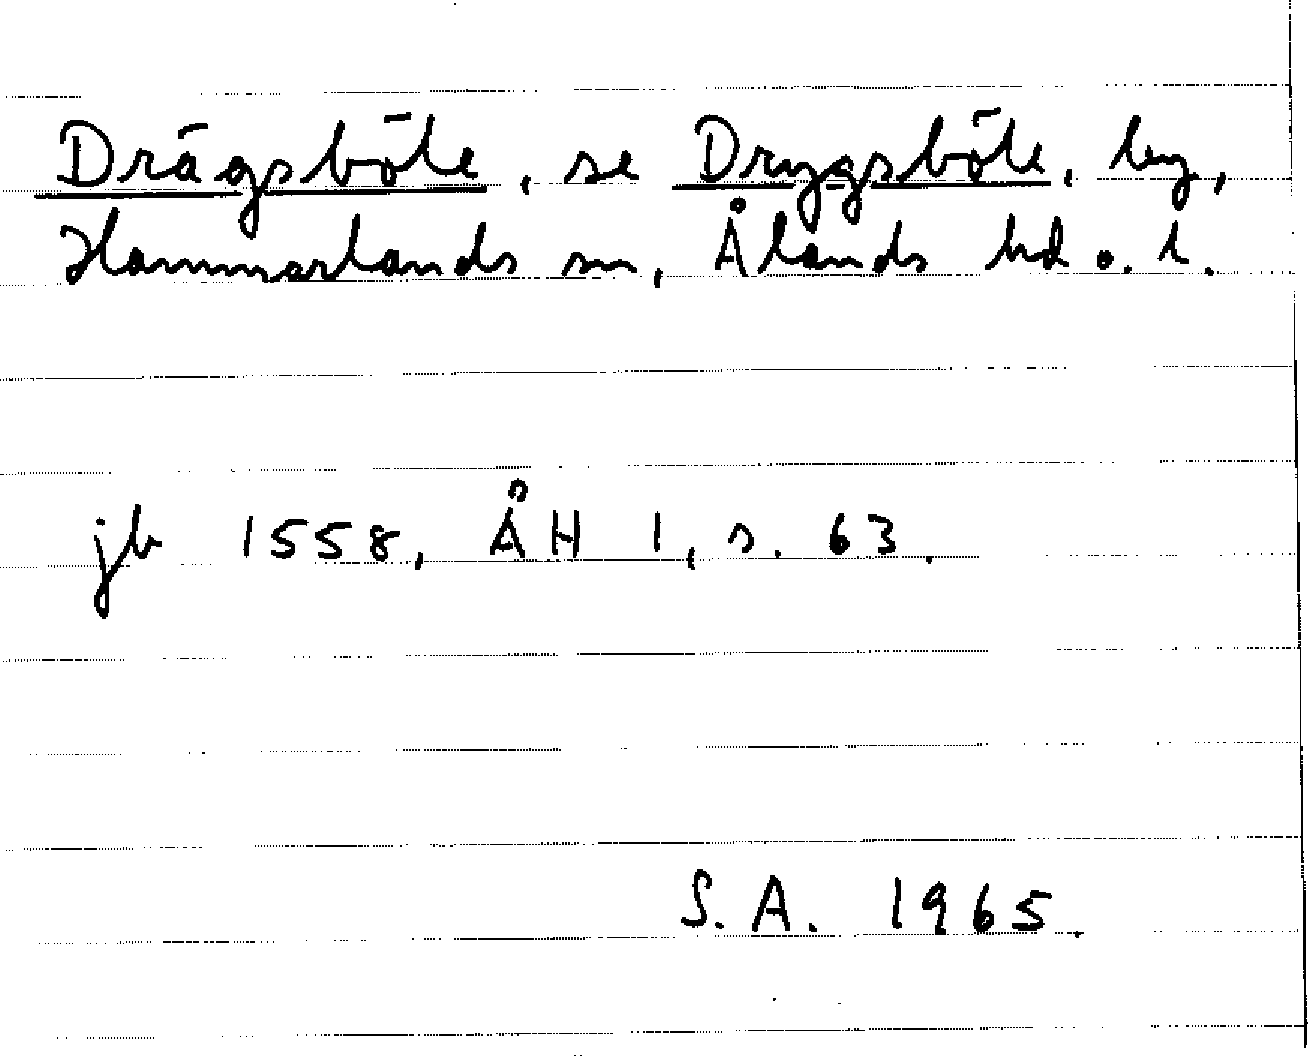 Drägsböle, se Drygsböle, by,
Hammarlands sn, Ålands hd o. l.
jb 1558, ÅH 1, s. 63.
S.A. 1965.